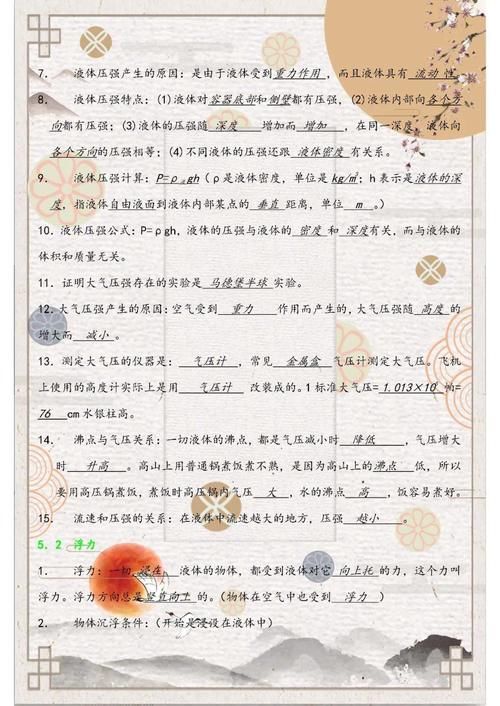 7. 液体压强产生的原因:是由于液体受到重力作用,而且液体具有 流动 性。
8. 液体压强特点:(1)液体对容器底部和侧壁都有压强,(2)液体内部向各个方
向都有压强;(3)液体的压强随 深度 增加而 增加 ,在同一深度,液体向
各个方向的压强相等;(4)不同液体的压强还跟 液体密度 有关系。
9. 液体压强计算:P=ρ液gh(ρ是液体密度,单位是kg/m³;h表示是液体的深
度,指液体自由液面到液体内部某点的 垂直 距离,单位 m 。)
10. 液体压强公式:P=ρgh,液体的压强与液体的 密度 和 深度有关,而与液体的
体积和质量无关。
11. 证明大气压强存在的实验是 马德堡半球 实验。
12. 大气压强产生的原因:空气受到 重力 作用而产生的,大气压强随 高度 的
增大而 减小 。
13. 测定大气压的仪器是: 气压计 ,常见 金属盒 气压计测定大气压。飞机
上使用的高度计实际上是用 气压计 改装成的。1标准大气压= 1.013×10⁵ 帕=
76 cm水银柱高。
14. 沸点与气压关系:一切液体的沸点,都是气压减小时 降低 ,气压增大
时 升高 。高山上用普通锅煮饭煮不熟,是因为高山上的沸点 低,所以
要用高压锅煮饭,煮饭时高压锅内气压 大 ,水的沸点 高 ,饭容易煮好。
15. 流速和压强的关系:在液体中流速越大的地方,压强 越小 。
5.2 浮力
1. 浮力:一切 浸在 液体的物体,都受到液体对它 向上托 的力,这个力叫
浮力。浮力方向总是竖直向上的。(物体在空气中也受到 浮力 )
2. 物体沉浮条件:(开始是浸没在液体中)